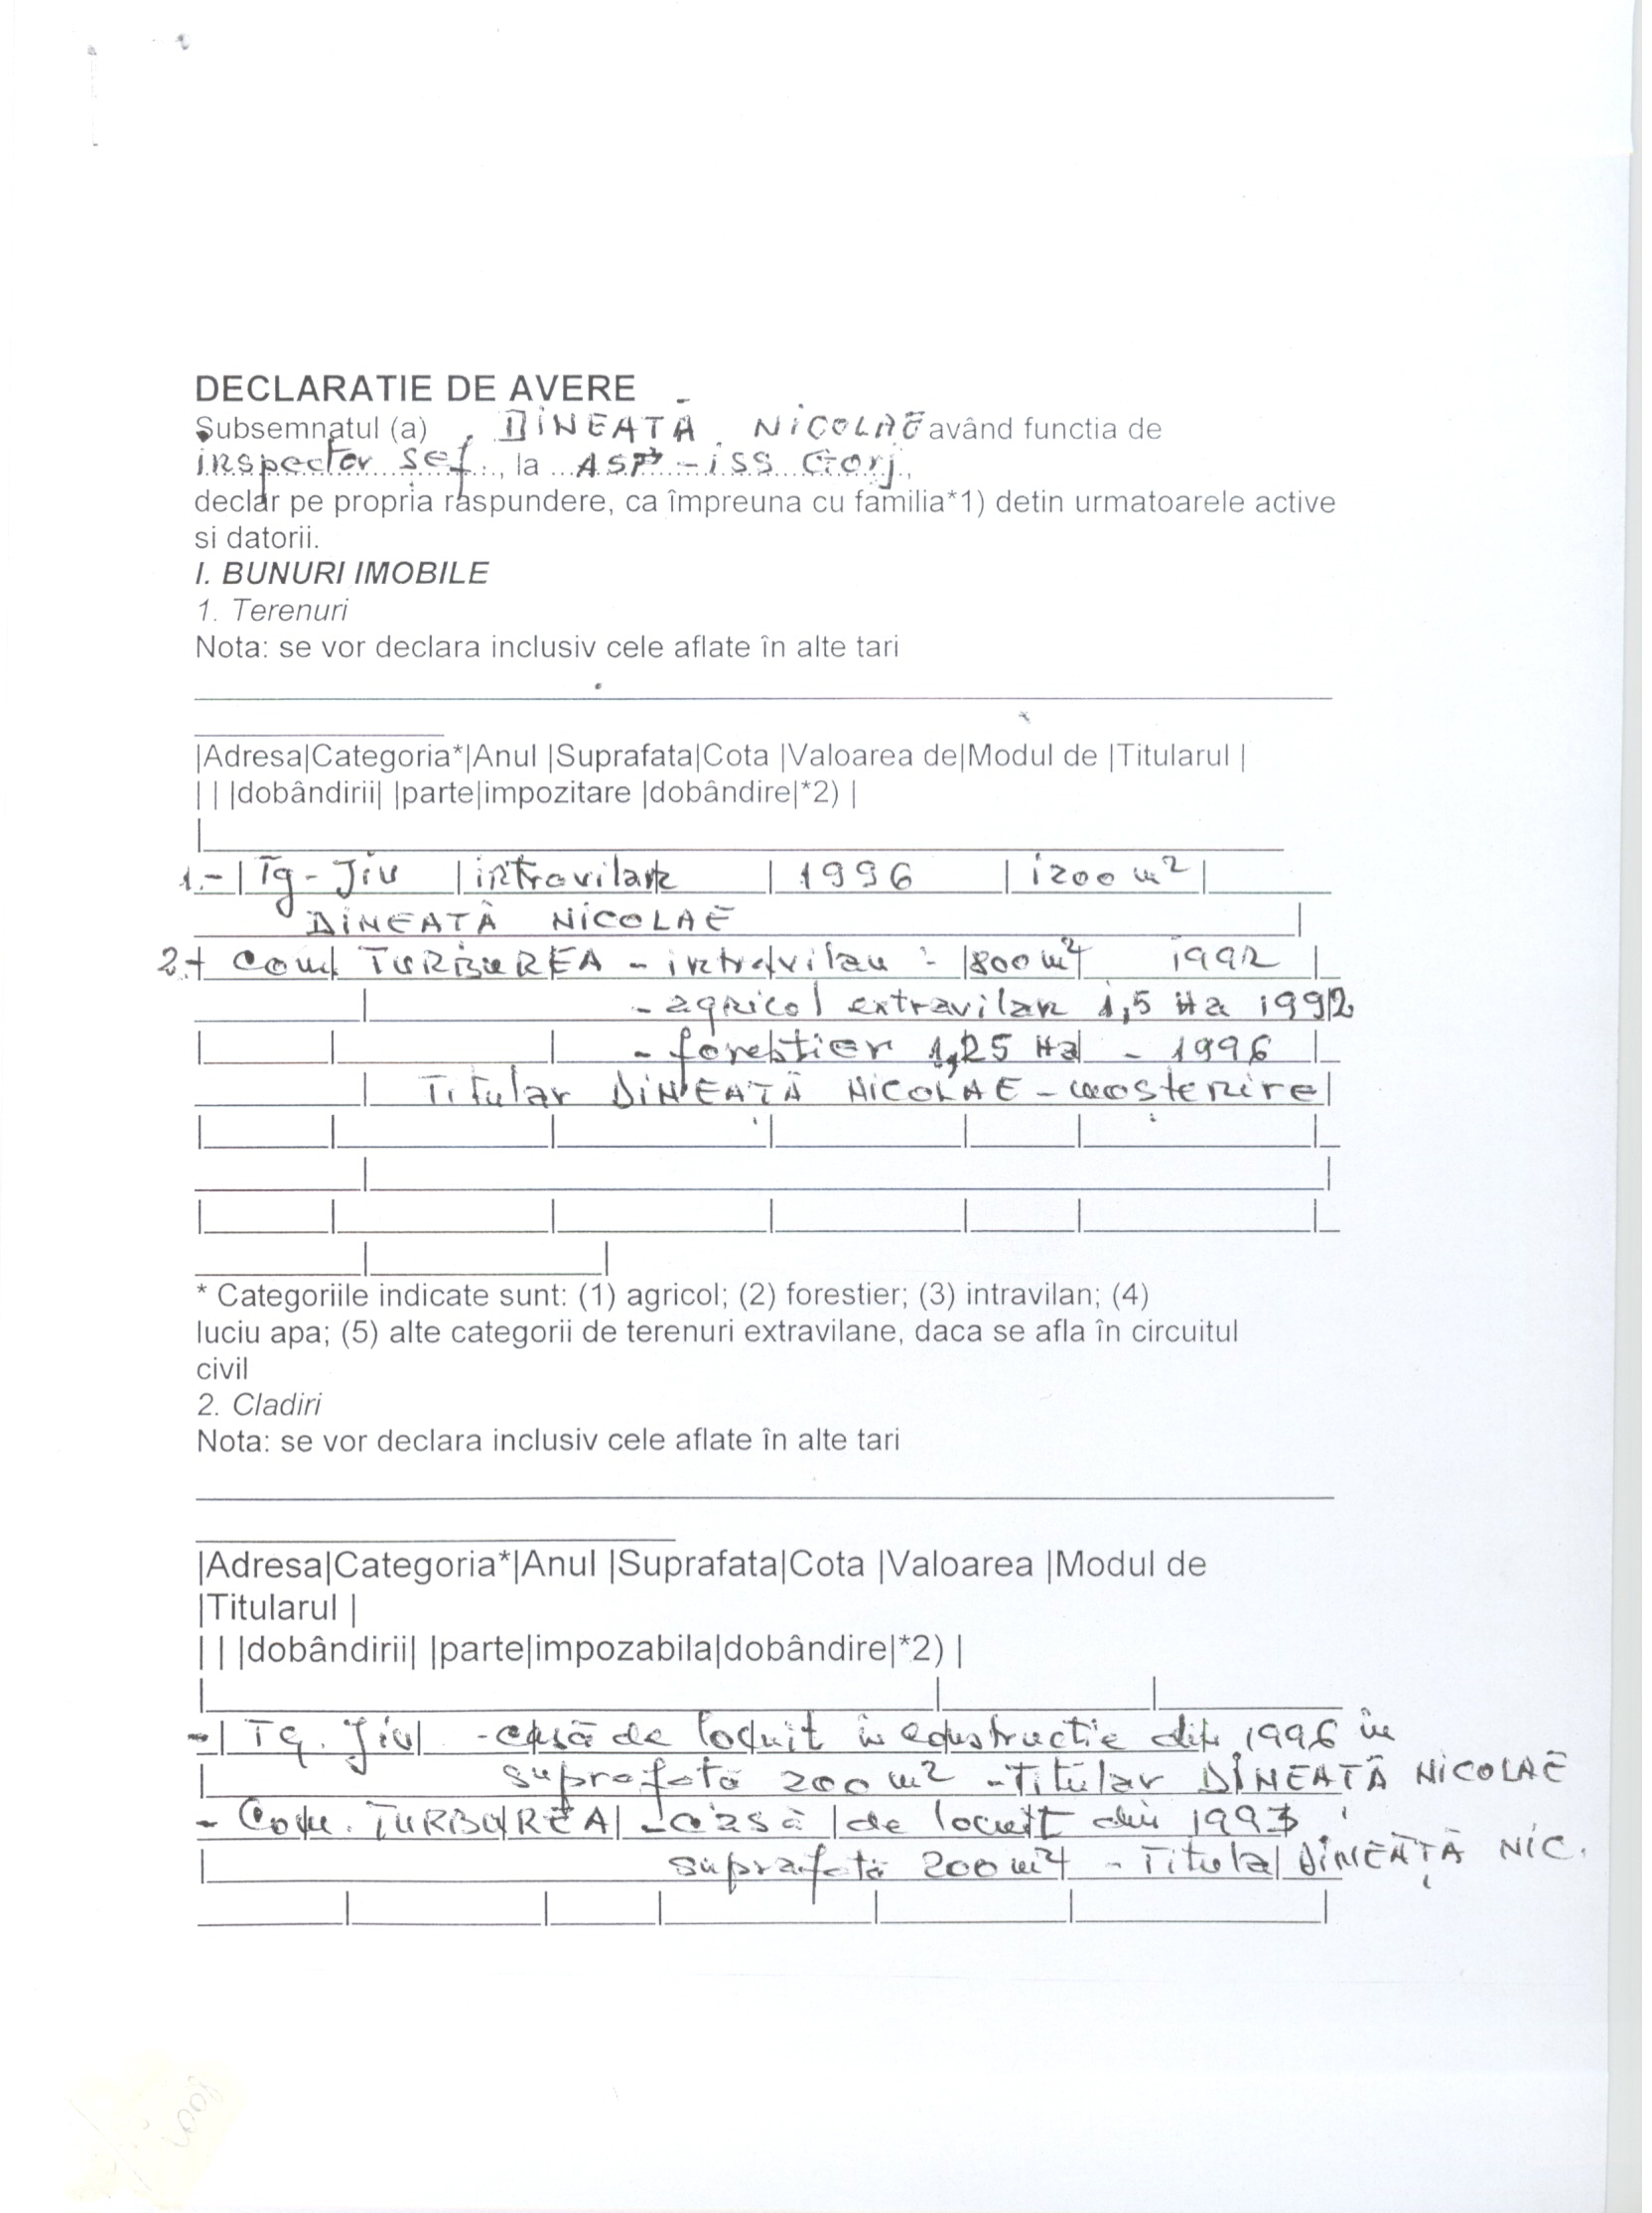 DECLARATIE DE AVERE
Subsemnatul (a) DINEAȚĂ NICOLAE având functia de
inspector sef, la ASP - ISS Gorj,
declar pe propria raspundere, ca împreuna cu familia*1) detin urmatoarele active
si datorii.
I. BUNURI IMOBILE
1. Terenuri
Nota: se vor declara inclusiv cele aflate în alte tari
|Adresa|Categoria*|Anul |Suprafata|Cota |Valoarea de|Modul de |Titularul |
| | |dobândirii| |parte|impozitare |dobândire|*2) |
1.-| Tg-Jiu | intravilan | 1996 | 1200 m² |
DINEATĂ NICOLAE
2.- Com TURBUREA - intravilan - 800 m² 1992
- agricol extravilan 1,5 Ha 1992
- forestier 1,25 Ha - 1996
Titular DINEATĂ NICOLAE - mostenire
* Categoriile indicate sunt: (1) agricol; (2) forestier; (3) intravilan; (4)
luciu apa; (5) alte categorii de terenuri extravilane, daca se afla în circuitul
civil
2. Cladiri
Nota: se vor declara inclusiv cele aflate în alte tari
|Adresa|Categoria*|Anul |Suprafata|Cota |Valoarea |Modul de
|Titularul |
| | |dobândirii| |parte|impozabila|dobândire|*2) |
- Tg. Jiu - casă de locuit in constructie din 1996 in
suprafată 200 m² - Titular DINEATĂ NICOLAE
- Com. TURBUREA - casă de locuit din 1993
suprafată 200 m² - Titular DINEAȚĂ NIC.